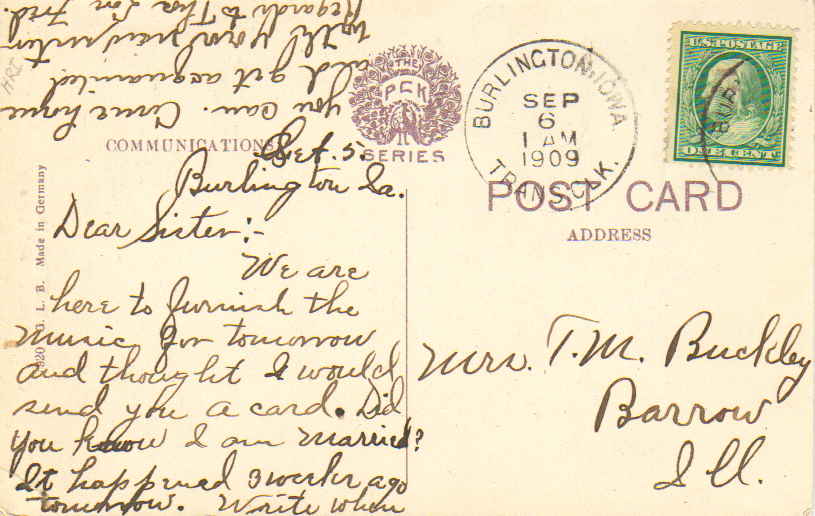 COMMUNICATIONS
THE
PCK
SERIES
BURLINGTON, IOWA.
SEP
6
1 AM
1909
TRANS. CLK.
U.S. POSTAGE
ONE CENT
POST CARD
ADDRESS
G. L. B. Made in Germany
Sept. 5.
Burlington Ia.
Dear Sister:-
We are
here to furnish the
music for tomorrow
and thought I would
send you a card. Did
you know I am married?
It happened 3 weeks ago
tomorrow. Write when
you can. Come home
and get acquainted
with your new sister
Regards to Tha Lon Fred.
Mrs. T. M. Buckley
Barrow
Ill.